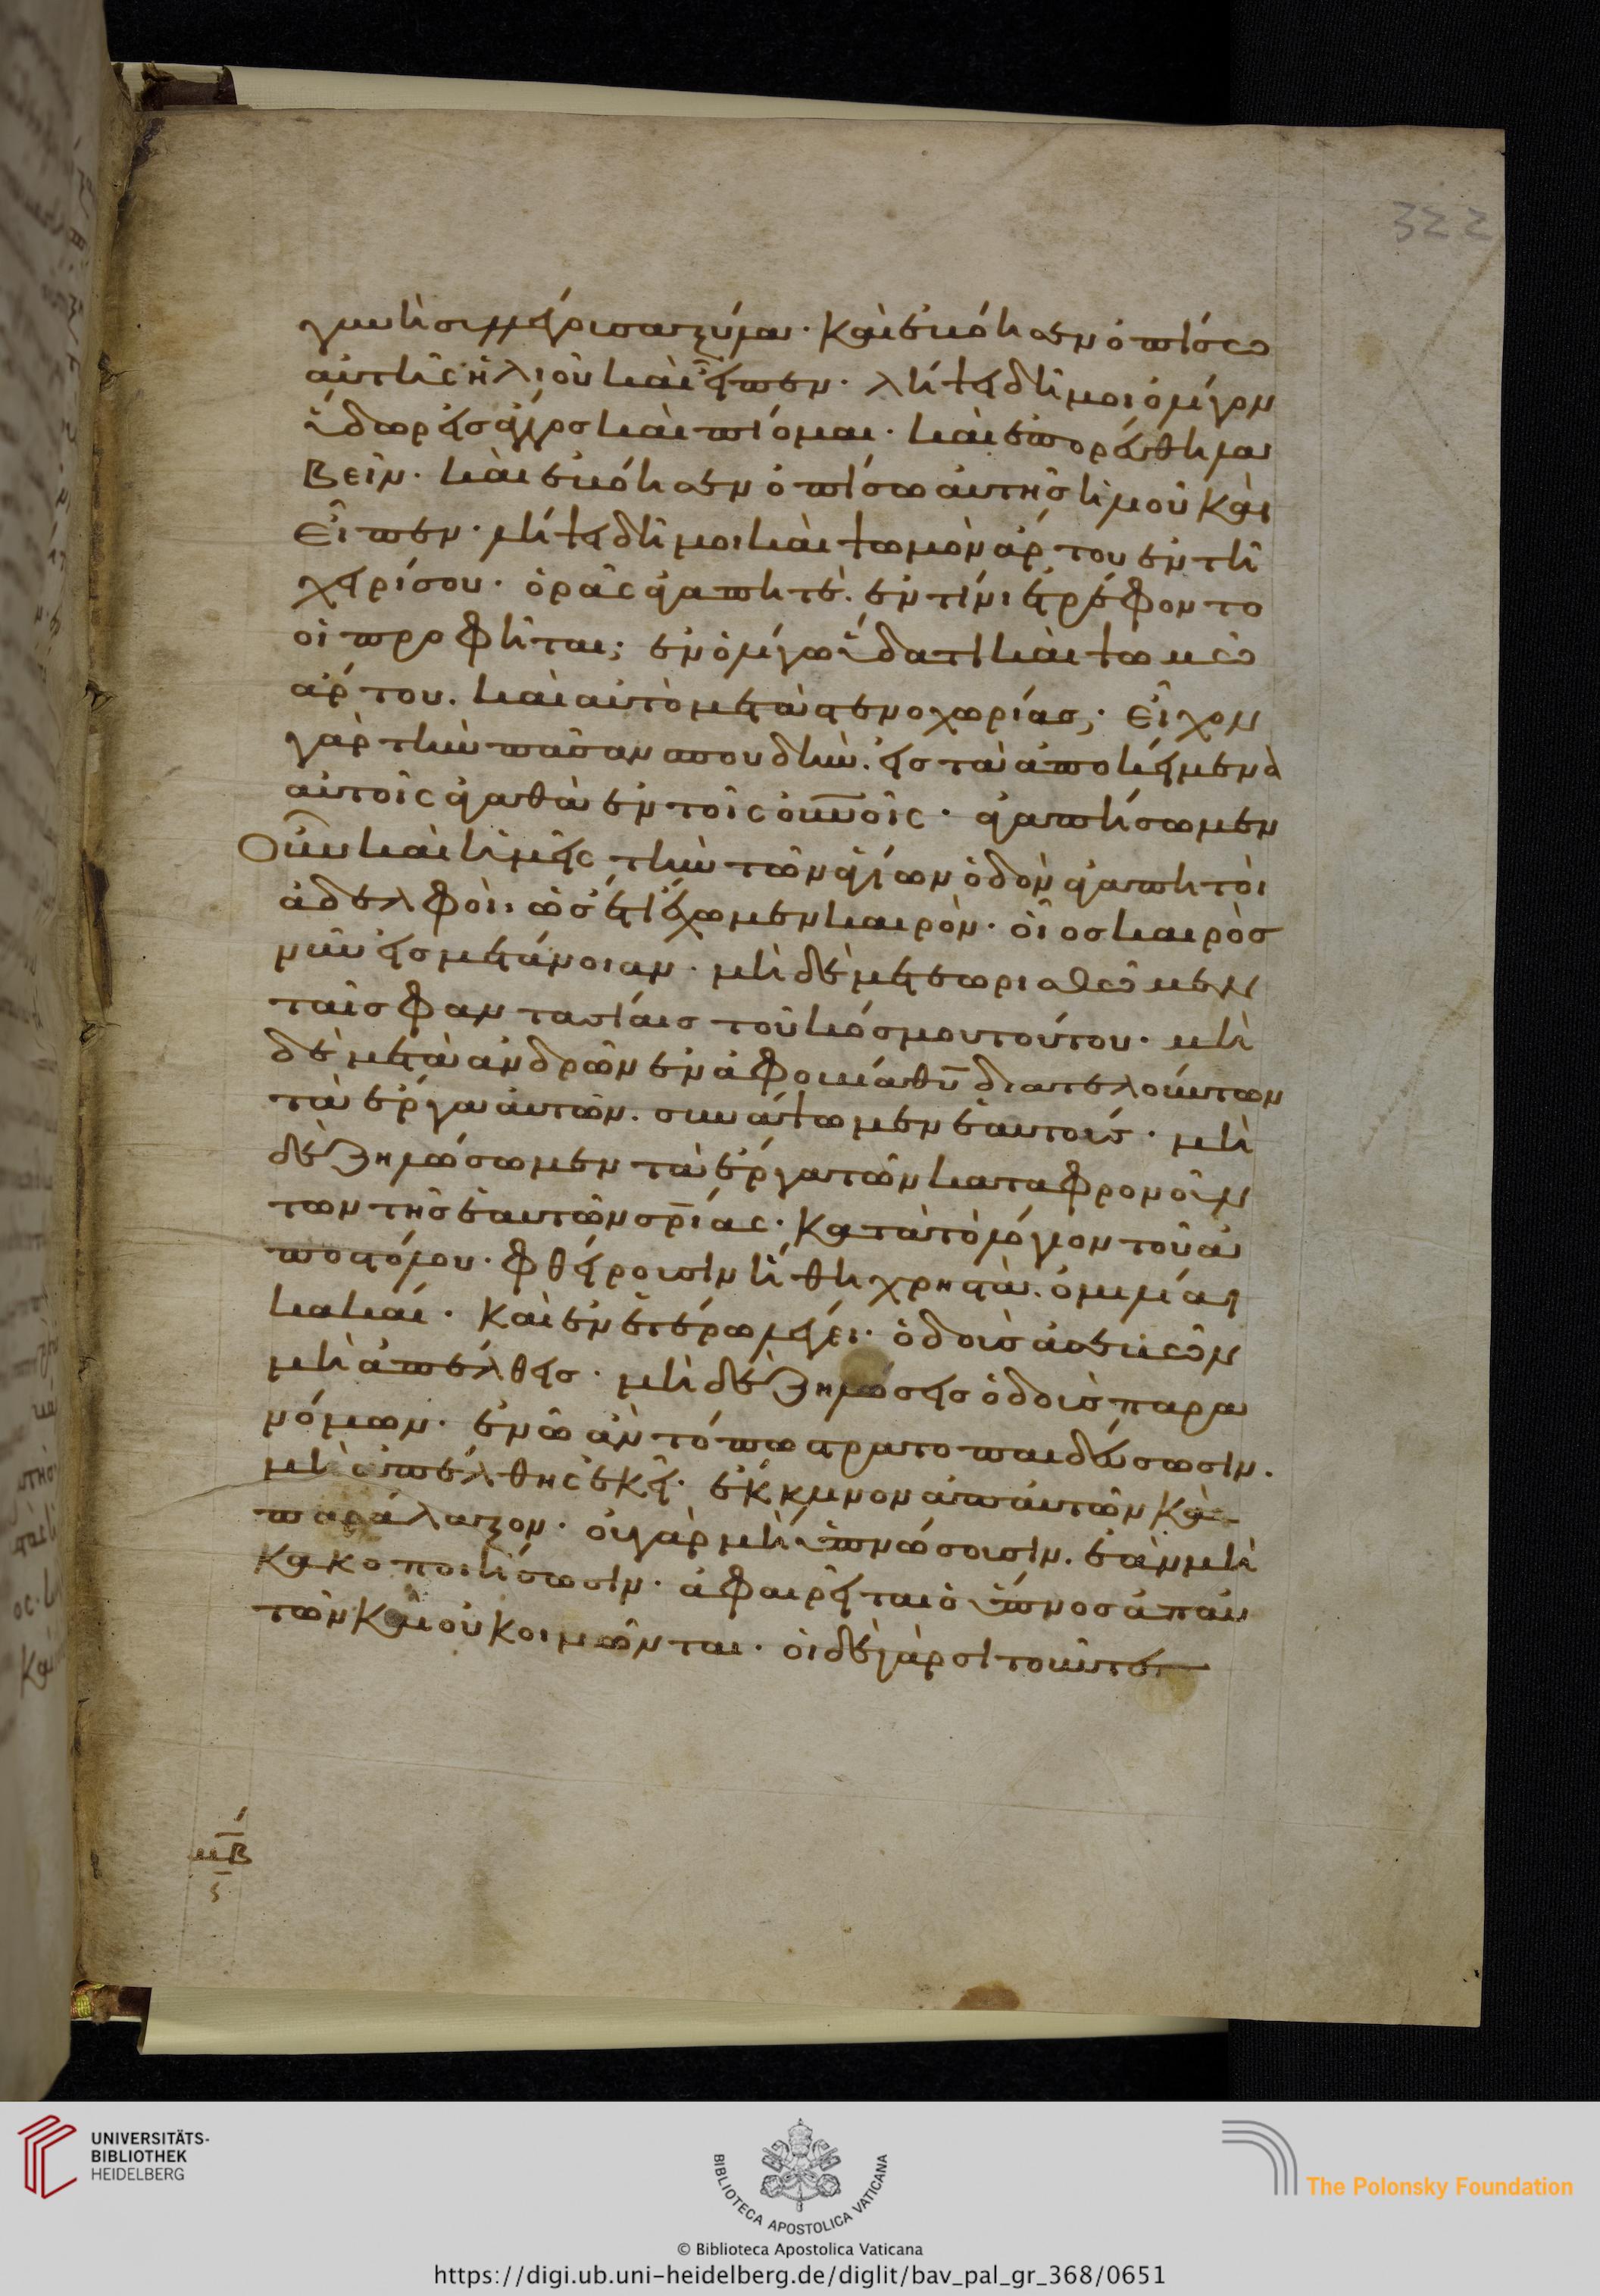 322
γυνὴ συλλέγουσα ξύλα· καὶ ἐβόησεν ὀπίσω
αὐτῆς ἠλιοῦ καὶ εἶπεν· λήψει δή μοι ὀλίγον
ὕδωρ εἰς ἄγγος καὶ πίομαι· καὶ ἐπορεύθη λα
βεῖν· καὶ ἐβόησεν ὀπίσω αὐτῆς ἠλιοῦ καὶ
εἶπεν· λήψει δή μοι καὶ ψωμὸν ἄρτου ἐν τῇ
χειρί σου· ὁρᾶς ἀγαπητέ. ἐν τίνι ἐτρέφοντο
οἱ προφῆται; ἐν ὀλίγω ὕδατι καὶ ψωμῶ
ἄρτου. καὶ αὐτὸ μετὰ στενοχωρίας· εἶχον
γὰρ τὴν πᾶσαν σπουδὴν. εἰς τὰ ἀποκείμενα
αὐτοῖς ἀγαθὰ ἐν τοῖς οὐνοῖς· ἀγαπήσωμεν
οὖν καὶ ἡμεῖς τὴν τῶν ἁγίων ὁδὸν ἀγαπητοὶ
ἀδελφοί· ὡς ἔτι ἔχωμεν καιρὸν· οἷος καιρὸς
νῦν εἰς μετάνοιαν· μὴ δὲ μετεωρισθῶμεν
ταῖς φαντασίαις τοῦ κόσμου τούτου· μὴ
δὲ μετὰ ἀνδρῶν ἐν ἀφοβία θυ διατελούντων
τὰ ἔργα αὐτῶν. συνάψωμεν ἑαυτούς· μὴ
δὲ ζηλώσωμεν τὰ ἔργα τῶν καταφρονούν
των τῆς ἑαυτῶν σρίας· κατὰ τὸ λόγιον τοῦ ἀ
ποστόλου· φθείρουσιν ἤθη χρηστὰ. ὁμιλίαι
κακαί· καὶ ἐν ἑτέρω λέγει· ὁδοὺς ἀσεβῶν
μὴ ἀπέλθεις· μὴ δὲ ζηλώσεις ὁδοὺς παρα
νόμων· ἐν ᾧ ἂν τόπω στρατοπαιδεύσωσιν.
μὴ ἀπέλθης ἐκεῖ· ἔκκλινον ἀπ' αὐτῶν καὶ
παράλαξον· οὐ γὰρ μὴ ὑπνώσουσιν. ἐὰν μὴ
κακοποιήσωσιν· ἀφαιρεῖται ὁ ὕπνος ἀπ' αὐ
τῶν καὶ οὐ κοιμῶνται· οἱ δὲ γὰρ σιτοῦνται
μβ
UNIVERSITÄTS-
BIBLIOTHEK
HEIDELBERG
BIBLIOTECA APOSTOLICA VATICANA
The Polonsky Foundation
© Biblioteca Apostolica Vaticana
https://digi.ub.uni-heidelberg.de/diglit/bav_pal_gr_368/0651